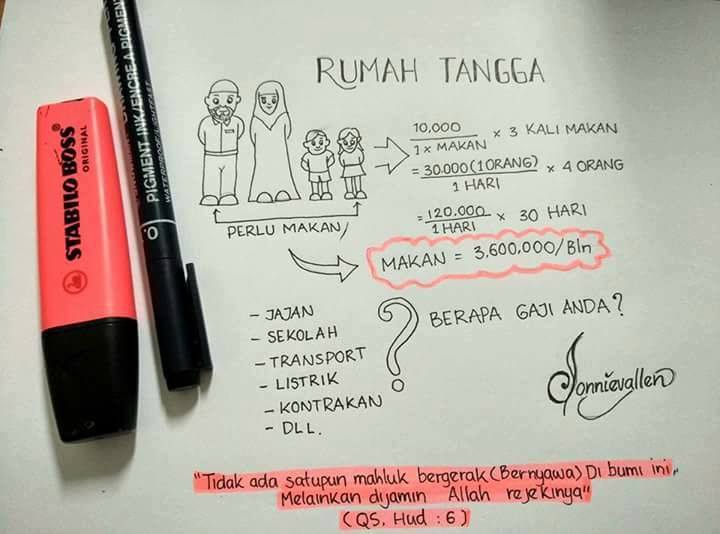 RUMAH TANGGA
10,000
1 x MAKAN x 3 KALI MAKAN
= 30.000 (1 ORANG) x 4 ORANG
1 HARI
= 120.000 x 30 HARI
1 HARI
PERLU MAKAN
MAKAN = 3,600,000/Bln
- JAJAN
- SEKOLAH
- TRANSPORT
- LISTRIK
- KONTRAKAN
- DLL.
?
BERAPA GAJI ANDA?
Jonnievallen
"Tidak ada satupun mahluk bergerak (Bernyawa) Di bumi ini,
Melainkan dijamin Allah rejekinya"
(QS. Hud : 6)
STABILO BOSS
ORIGINAL
PIGMENT INK/ENCRE A PIGMENT